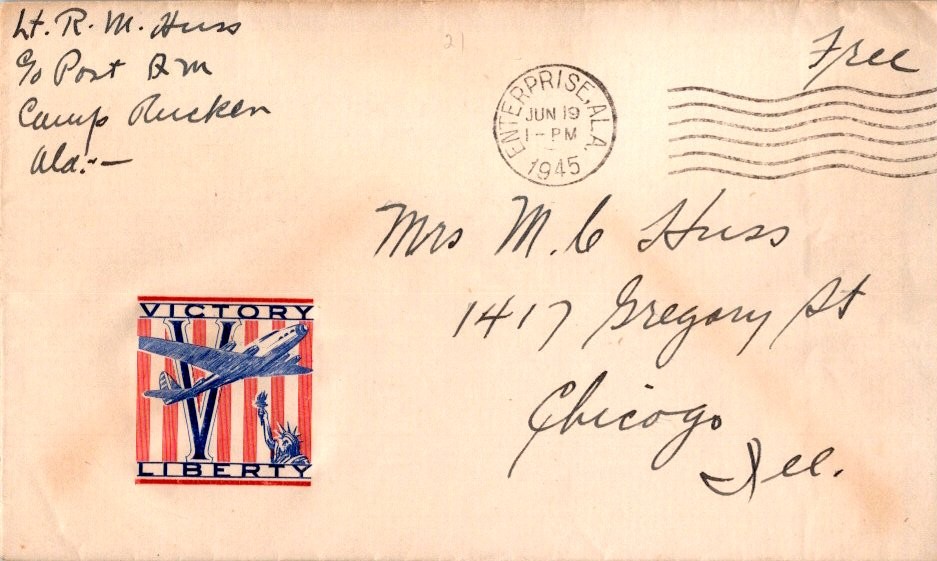 Lt. R. M. Huss
c/o Post Q M
Camp Rucker
Ala.—
21
Free
ENTERPRISE, ALA.
JUN 19
1-PM
1945
Mrs M. C Huss
1417 Gregory St
Chicago
Ill.
VICTORY
V
LIBERTY